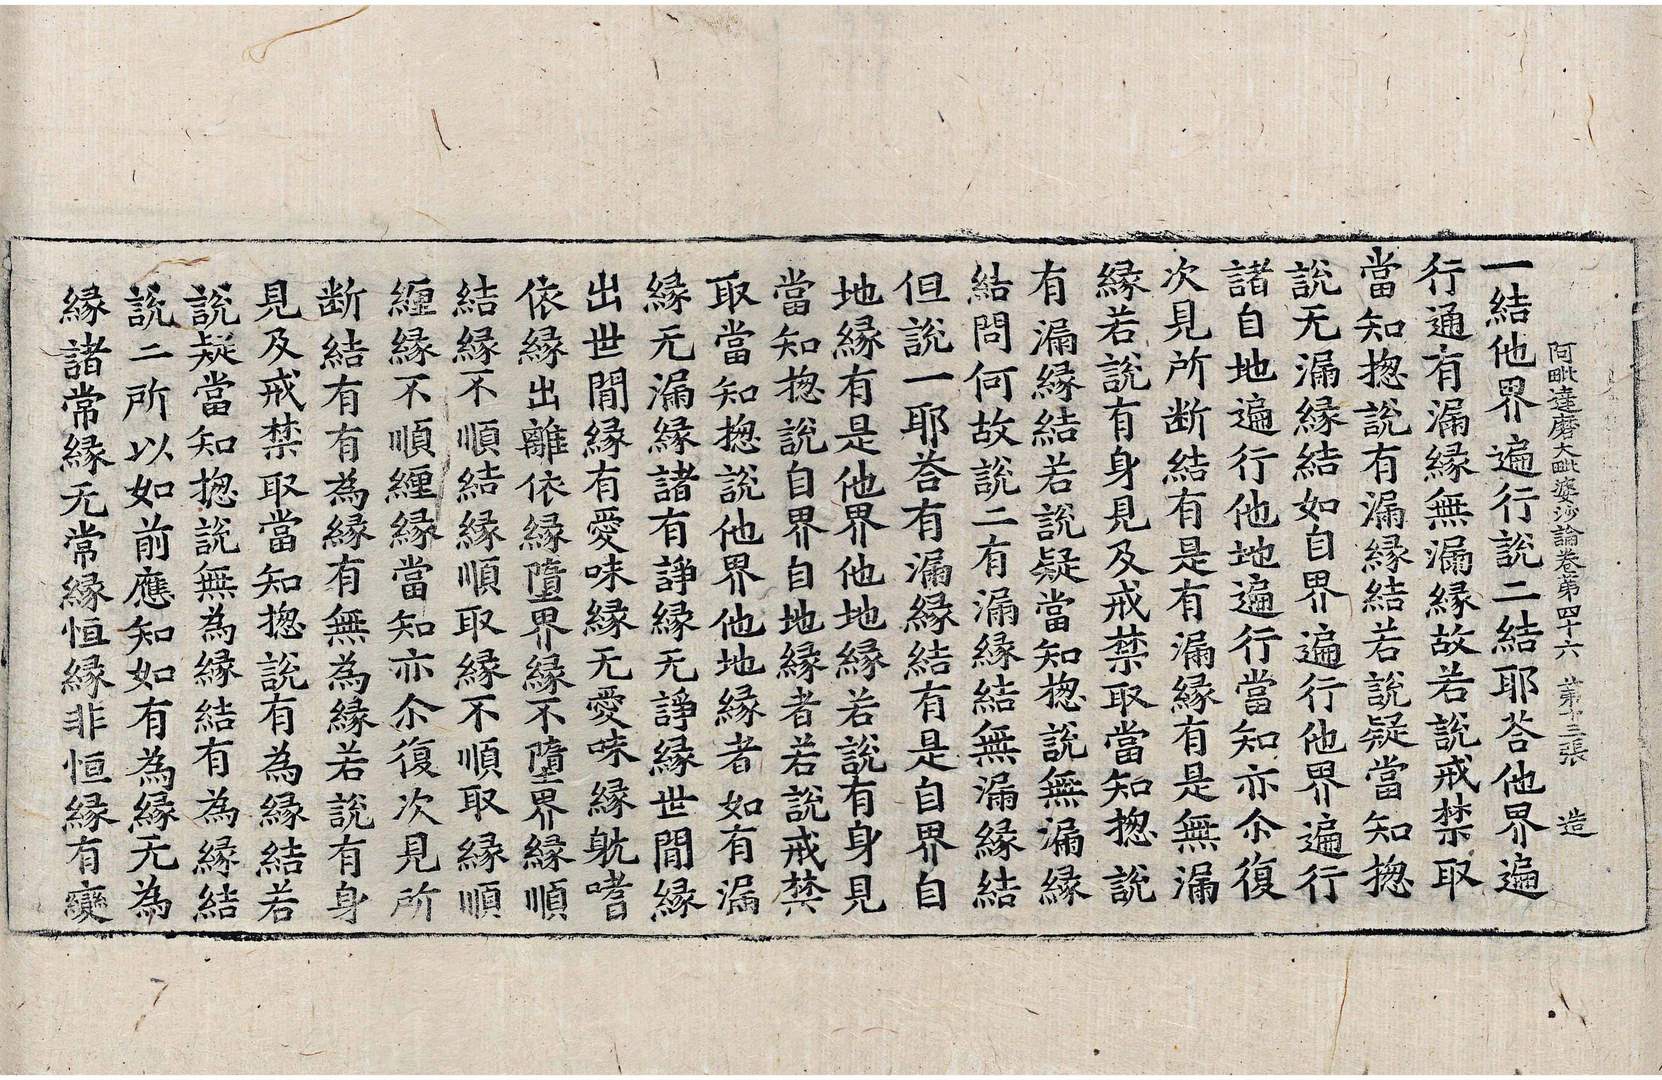 阿毗達磨大毗婆沙論卷第四十六　第十三張　造
一結他界遍行說二結耶荅他界遍
行通有漏緣無漏緣故若說戒禁取
當知揔說有漏緣結若說疑當知揔
說无漏緣結如自界遍行他界遍行
諸自地遍行他地遍行當知亦尒復
次見所斷結有是有漏緣有是無漏
緣若說有身見及戒禁取當知揔說
有漏緣結若說疑當知揔說無漏緣
結問何故說二有漏緣結無漏緣結
但說一耶荅有漏緣結有是自界自
地緣有是他界他地緣若說有身見
當知揔說自界自地緣者若說戒禁
取當知揔說他界他地緣者如有漏
緣无漏緣諸有諍緣无諍緣世閒緣
出世閒緣有愛味緣无愛味緣躭嗜
依緣出離依緣墮界緣不墮界緣順
結緣不順結緣順取緣不順取緣順
纏緣不順纏緣當知亦尒復次見所
断結有有為緣有無為緣若說有身
見及戒禁取當知揔說有為緣結若
說疑當知揔說無為緣結有為緣結
說二所以如前應知如有為緣无為
緣諸常緣无常緣恒緣非恒緣有變